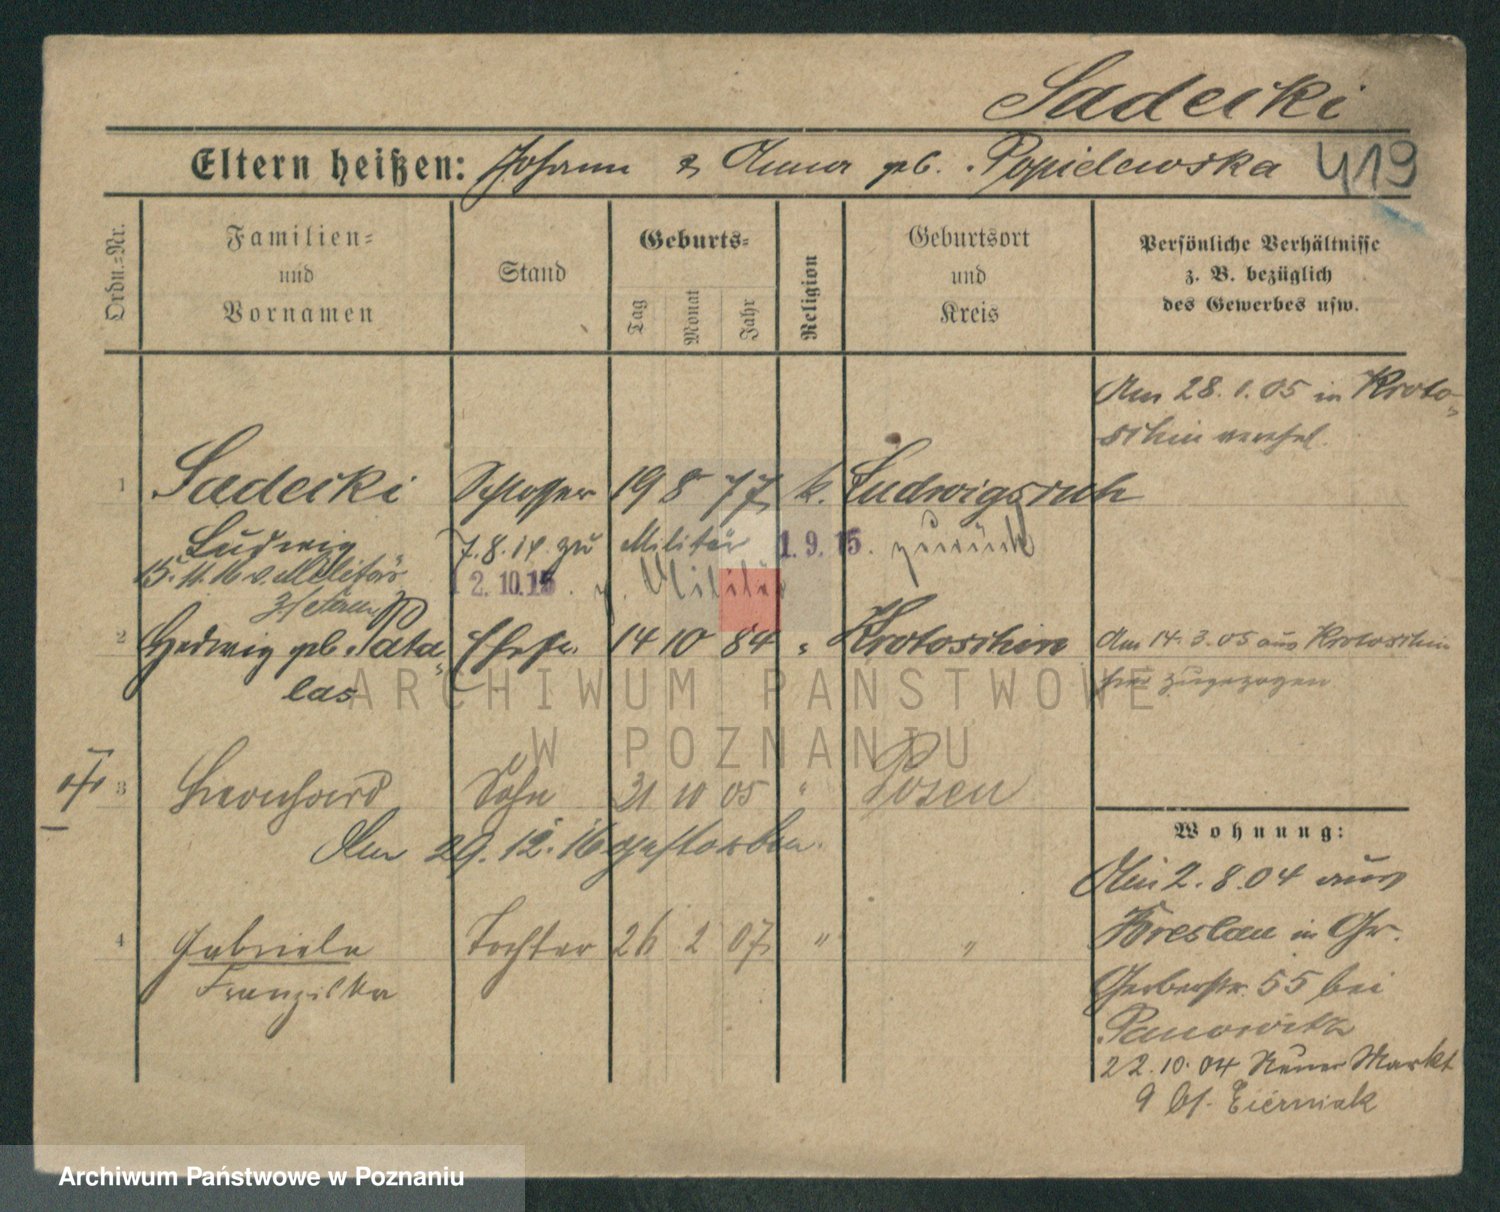 Sadecki
Eltern heißen: Johann & Anna geb. Popielewska 419
Ordn.-Nr.
Familien-
und
Vornamen
Stand
Geburts-
Tag
Monat
Jahr
Religion
Geburtsort
und
Kreis
Persönliche Verhältnisse
z. B. bezüglich
des Gewerbes usw.
Am 28.1.05 in Kroto-
schin verehel.
1 Sadecki Schlosser 19 8 77 k. Ludwigsruh
Ludwig 7.8.14. zu Militär 1.9.15. zurück
15.11.16 v. Militär 12.10.15. z. Militär
2 Hedwig geb. Pata- Ehefr. 14 10 84 " Krotoschin Am 14.3.05 aus Krotoschin
las hier zugezogen
3 Leonhard Sohn 31 10 05 " Posen
Am 29.12.16 gestorben.
4 Gabriela Tochter 26 2 07 " "
Franziska
Wohnung:
Am 2.8.04 aus
Breslau in Gr.
Gerberstr. 55 bei
Panowicz
22.10.04 Neuer Markt
9 bf. Eierniak
ARCHIWUM PAŃSTWOWE
W POZNANIU
Archiwum Państwowe w Poznaniu